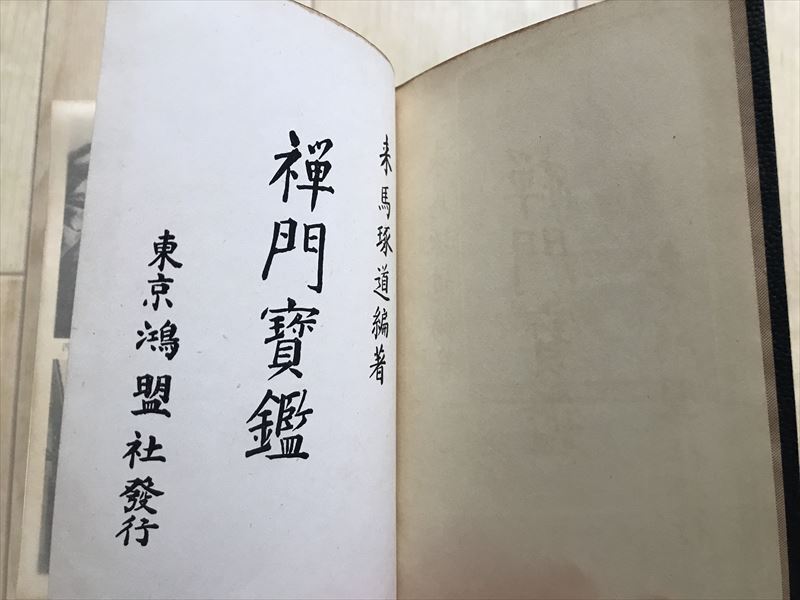 来馬琢道編著
禅門寶鑑
東京鴻盟社發行